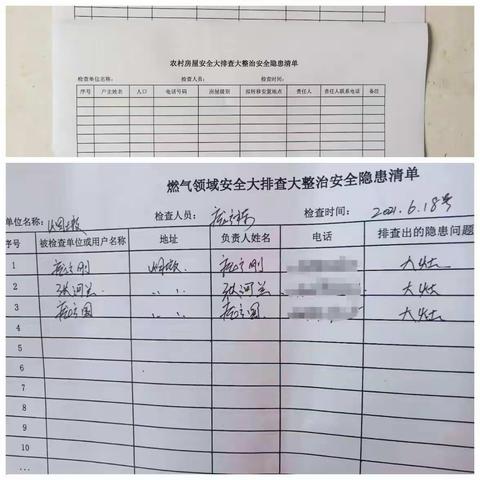 农村房屋安全大排查大整治安全隐患清单
检查单位名称： 检查人员： 检查时间：
序号 户主姓名 人口 电话号码 房屋级别 拟转移安置地点 责任人 责任人联系电话 备注
燃气领域安全大排查大整治安全隐患清单
单位名称： 检查人员： 检查时间： 2021.6.18号
序号 被检查单位或用户名称 地址 负责人姓名 电话 排查出的隐患问题
1 大灶
2 张河兰 〃 张河兰 大灶
3 〃 大灶
4
5
6
7
8
9
10
...